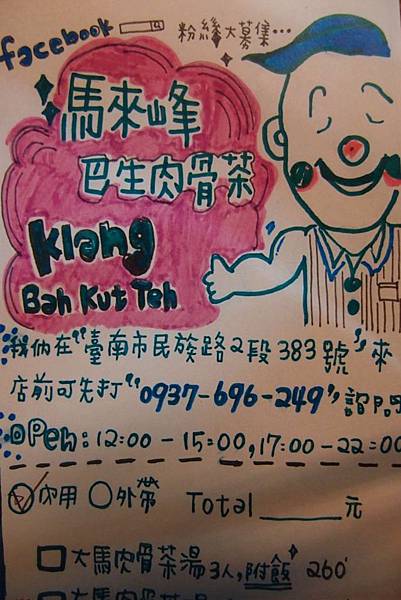 facebook 粉絲大募集…
馬來峰
巴生肉骨茶
Klang
Bah Kut Teh
我們在"臺南市民族路2段383號"來
店前可先打"0937-696-249"諮詢
OPen：12:00－15:00,17:00－22=00
內用 外帶 Total______元
大馬肉骨茶湯3人,附飯 260